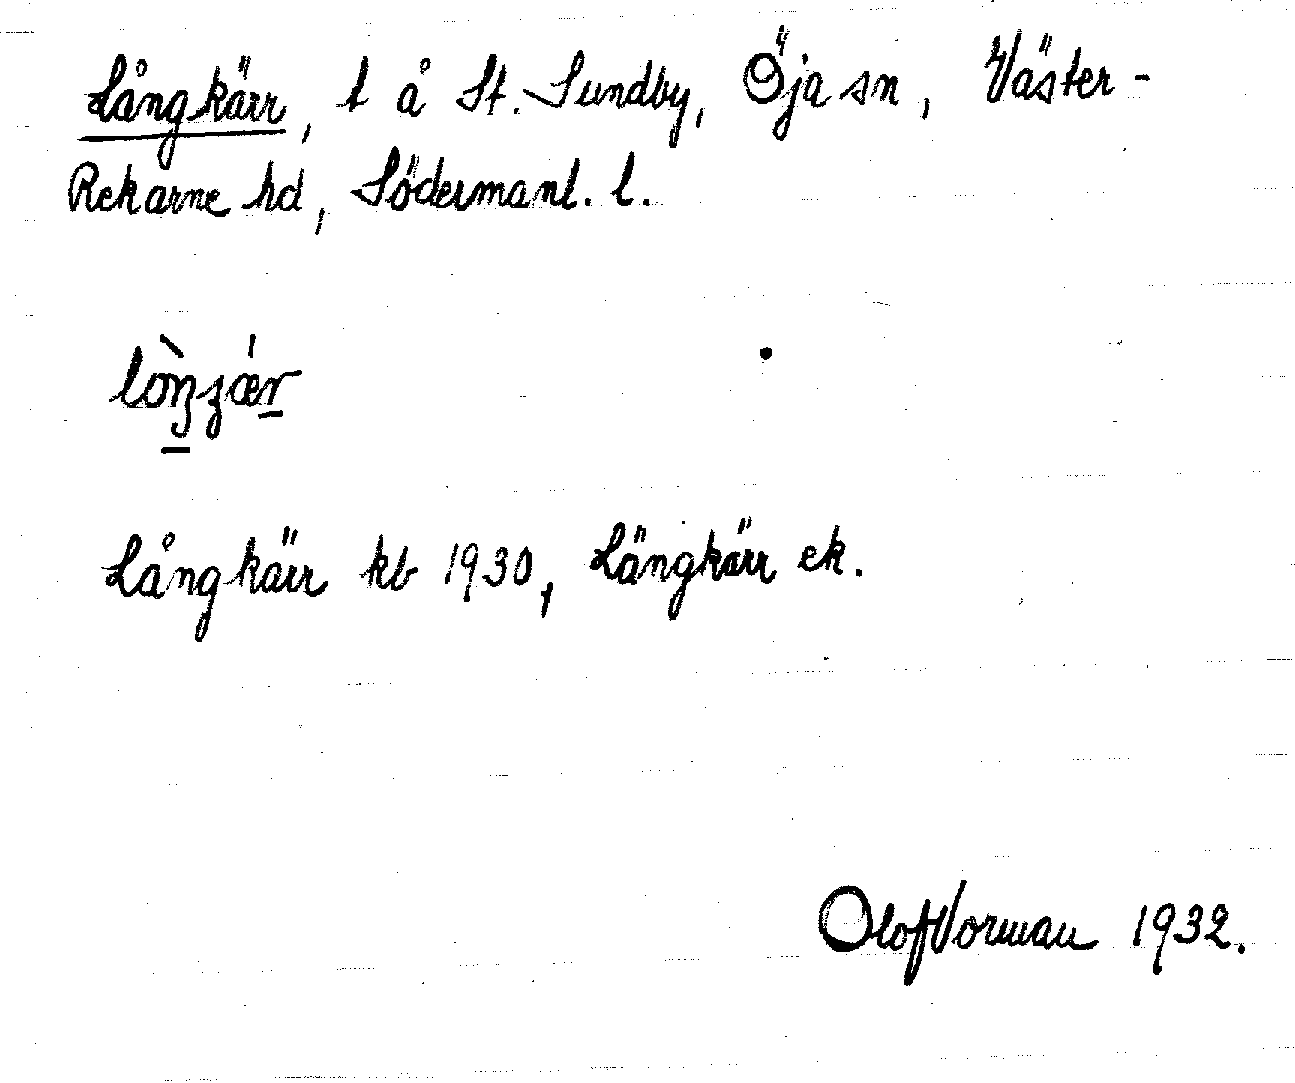 Långkärr, t å St. Sundby, Öja sn, Väster-
Rekarne hd, Södermanl. l.
Långkärr kb 1930, Längkärr ek.
Olof Vorman 1932.